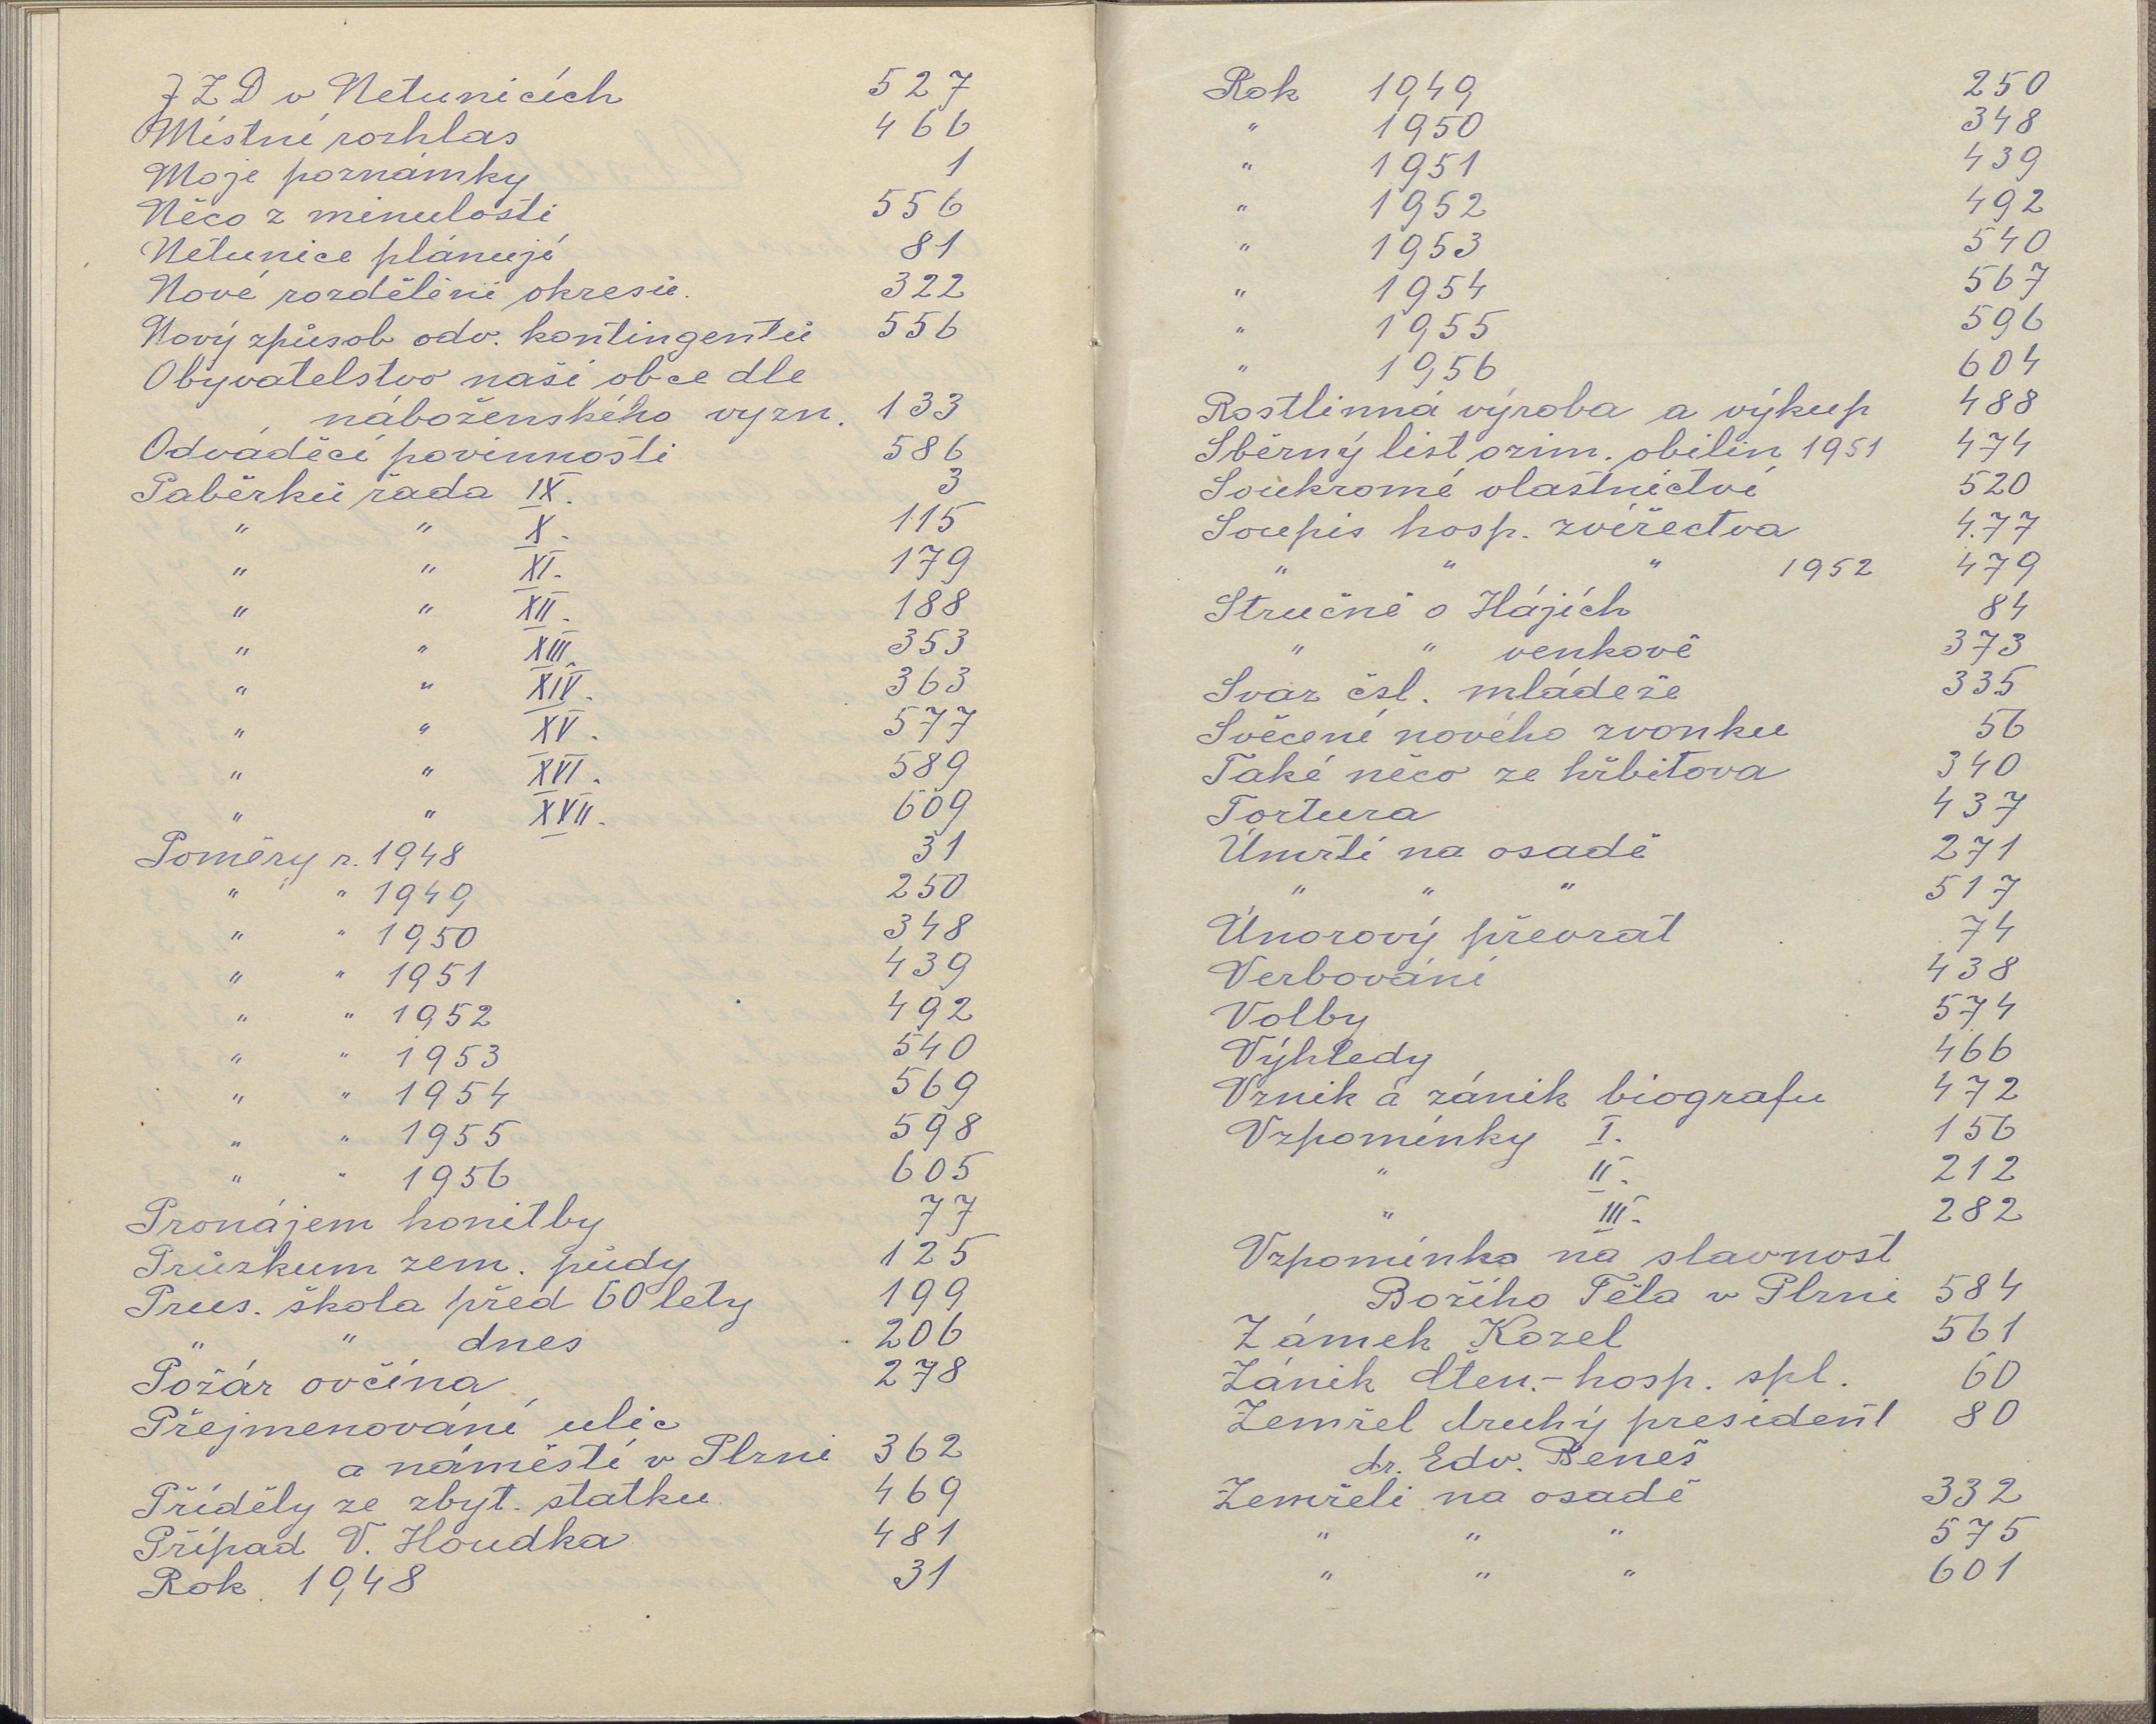 JZD v Netunicích 527
Místní rozhlas 466
Moje poznámky 1
Něco z minulosti 556
Netunice plánují 81
Nové rozdělení okresů. 322
Nový způsob odv. kontingentů 556
Obyvatelstvo naší obce dle
náboženského vyzn. 133
Odváděcí povinnosti 586
Paběrků řada IX. 3
" " X. 115
" " XI. 179
" " XII. 188
" " XIII. 353
" " XIV. 363
" " XV. 577
" " XVI. 589
" " XVII. 609
Poměry r. 1948 31
" " 1949 250
" " 1950 348
" " 1951 439
" " 1952 492
" " 1953 540
" " 1954 569
" " 1955 598
" " 1956 605
Pronájem honitby 77
Průzkum zem. půdy 125
Prus. škola před 60 lety 199
" " dnes 206
Požár ovčína 278
Přejmenování ulic
a náměstí v Plzni 362
Příděly ze zbyt. statku 469
Případ V. Houdka 481
Rok 1948 31
Rok 1949 250
" 1950 348
" 1951 439
" 1952 492
" 1953 540
" 1954 567
" 1955 596
" 1956 604
Rostlinná výroba a výkup 488
Sběrný list ozim. obilin 1951 474
Soukromé vlastnictví 520
Soupis hosp. zvířectva 477
" " " 1952 479
Stručně o Hájích 84
" " venkově 373
Svaz čsl. mládeže 335
Svěcení nového zvonku 56
Také něco ze hřbitova 340
Tortura 437
Úmrtí na osadě 271
" " " 517
Únorový převrat 74
Verbování 438
Volby 574
Výhledy 466
Vznik a zánik biografu 472
Vzpomínky I. 156
" II. 212
" III. 282
Vzpomínka na slavnost
Božího Těla v Plzni 584
Zámek Kozel 561
Zánik čten.-hosp. spl. 60
Zemřel druhý president 80
dr. Edv. Beneš
Zemřeli na osadě 332
" " " 575
" " " 601